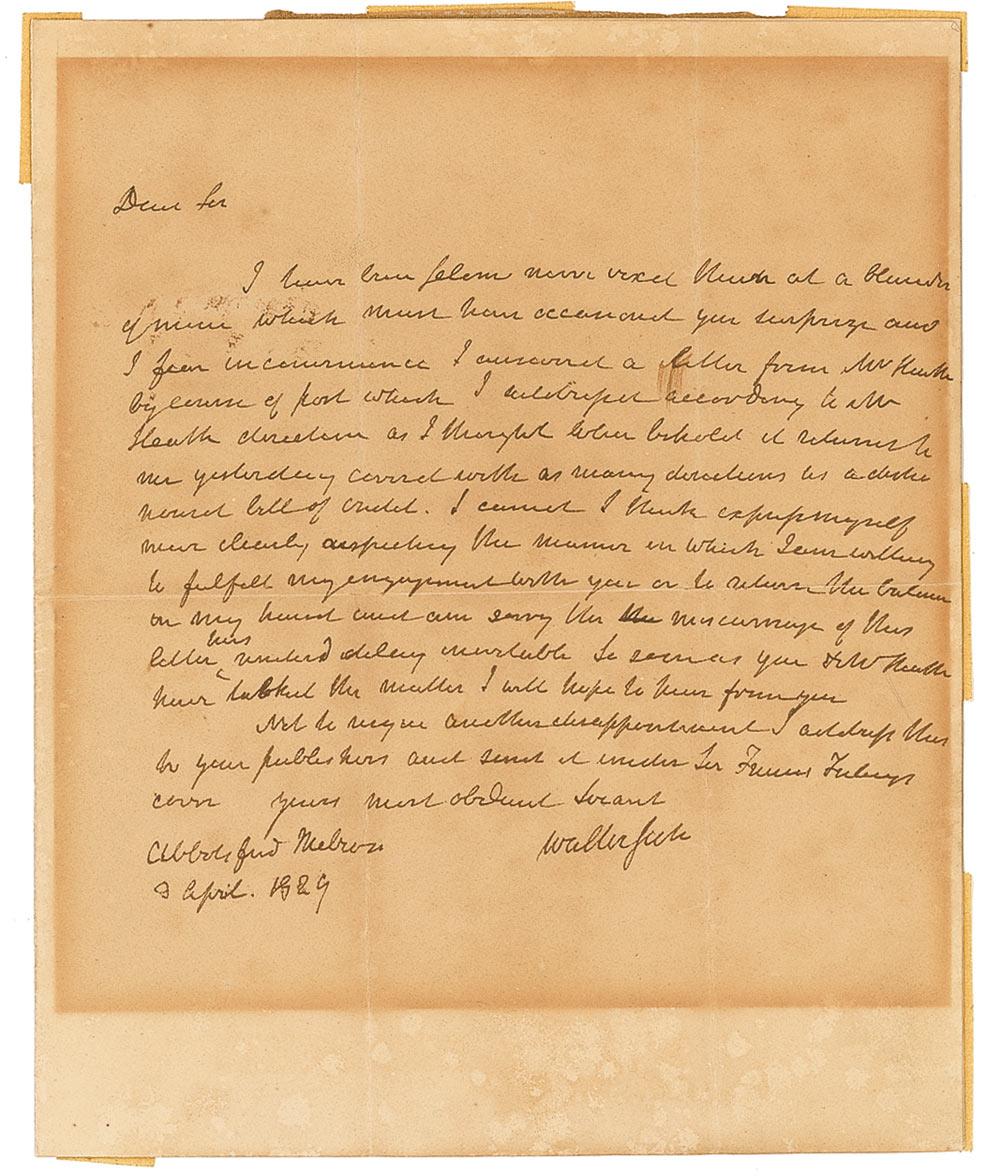 Dear Sir
I have been seldom more vexed than at a blunder
of mine which must have occasiond your surprize and
I fear inconvenience I answerd a letter from Mr Heath
by course of post which I addressd according to Mr
Heaths direction as I thought when behold it returns to
me yesterday coverd with as many directions as a dishonourd
bill of credit. I cannot I think express myself
more clearly respecting the manner in which I am willing
to fulfill my engagement with you or to return the balance
on my hand and am sorry the miscarriage of this
letter has renderd delay inevitable So soon as you & Mr Heath
have talked the matter I will hope to hear from you
Not to incur another disappointment I address this
to your publishers and send it under Sir Francis Freelings
cover yours most obedient Servant
Abbotsford Melrose Walter Scott
3 April. 1829